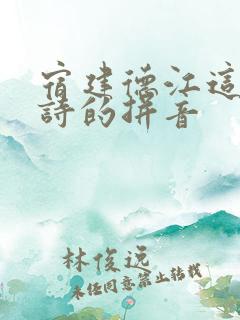 宿建德江這
詩的拼音
林俊远
未经同意禁止转载